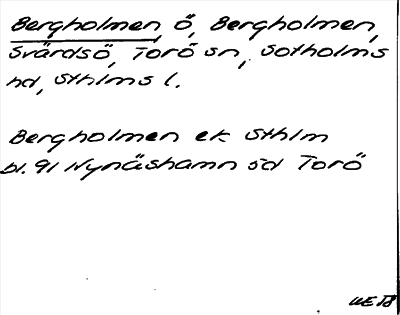 Bergholmen, ö, Bergholmen,
Svärdsö, Torö sn, Sotholms
hd, Sthlms l.
Bergholmen ek Sthlm
bl. 91 Nynäshamn sd Torö